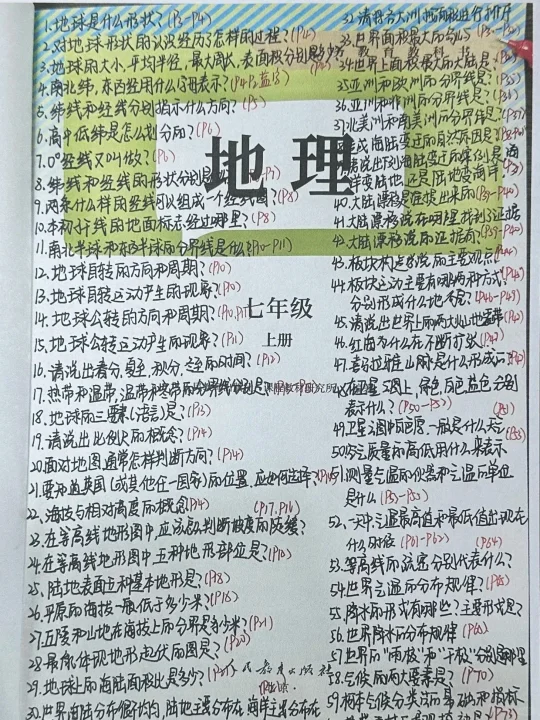 1.地球是什么形状?(P3-P4)
2.对地球形状的认识经历了怎样的过程?(P4)
3.地球的大小,平均半径,最大周长,表面积分别是多少?
4.南北纬,东西经用什么字母表示?
5.纬线和经线分别指示什么方向?(P5)
6.高中低纬是怎么划分的?(P6)
7.0°经线又叫做?(P6)
8.纬线和经线的形状分别是
9.两条什么样的经线可以组成一个经线圈?(P8)
10.本初子线的地面标志经过哪里?(P8)
11.南北半球和东西半球的分界线是什么?(P10-P11)
12.地球自转的方向和周期?(P10)
13.地球自转运动产生的现象?(P10)
14.地球公转的方向和周期?(P10,P11)
15.地球公转运动产生的现象?(P11)
16.请说出春分,夏至,秋分,冬至的时间?(P12)
17.热带和温带,温带和寒带的分界线分别是
18.地球的三要素(语言)是?(P13)
19.请说出比例尺的概念?(P14)
20.面对地图通常怎样判断方向?(P14)
21.要知道英国(或其他任一国家)的位置,应如何选择?
22.海拔与相对高度的概念(P14)
(P17,P16)
23.在等高线地形图中,应该怎么判断坡度的陡缓?
24.在等高线地形图中五种地形部位是?(P16)
25.陆地表面五种基本地形是?(P18)
26.平原的海拔一般低于多少米?(P18)
27.丘陵和山地在海拔上的分界是多少米?(P21)
28.最能体现地形起伏的图是?(P20)
29.地球上的海陆面积比是多少?
30.世界海陆分布很不均匀,陆地主要分布在 海洋主要分布在
地理
七年级
上册
教育研究所
人民教育出版社
教育教科书
32.请将各大洲按面积进行排序
33.世界面积最大的岛屿
34.世界上面积最大的大陆是?
35.亚洲和欧洲的分界线是?
36.亚洲和非洲的分界线是?
37.北美洲和南美洲的分界线是?
38.造成海陆变迁的自然原因是?
40.大陆漂移是谁提出来的
41.大陆漂移说在哪里找到了证据
42.大陆漂移说的证据有
43.板块构造学说的主要观点
44.板块运动主要有哪两种方式?
分别形成什么地形?
45.请说出世界上的两大火山地震带
46.红海为什么在不断扩张?
47.喜马拉雅山脉是什么形成的
48.在卫星云图上,绿色,白色,蓝色分别
表示什么?(P50-P52)
49.卫星云图中的白色一般是什么天气
50.空气质量的高低用什么来表示
51.测量气温的仪器和气温的单位
是什么(P52-P53)
52.一天中气温最高值和最低值出现在
什么时候(P61-P62)
53.等高线的疏密分别代表什么?
54.世界气温的分布规律?
55.降水的形式有哪些?主要形式是?
56.世界降水的分布规律(P68)
57.世界的"雨极"和"干极"分别是哪里
58.气候的两大要素是?(P70)
59.柯本气候分类法的基础和指标